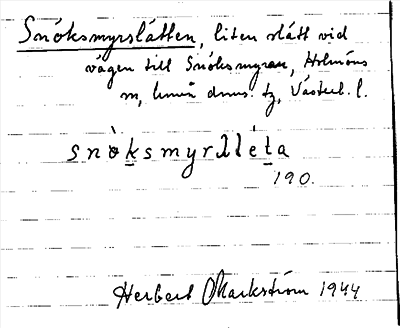 Snóksmyrslåtten, liten slått vid
vägen till Snóksmyran, Holmöns
sn, Umeå dms. tg, Västerb. l.
snòksmyrslléta
190.
Herbert Markström 1944